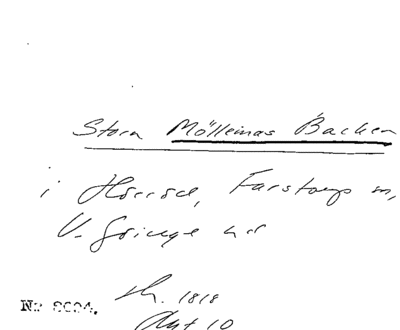 Stora Mölleinas Backen
i Horröd, Farstorps sn,
V. Göinge hd
Nr 8024.
Sk. 1818
Akt 10